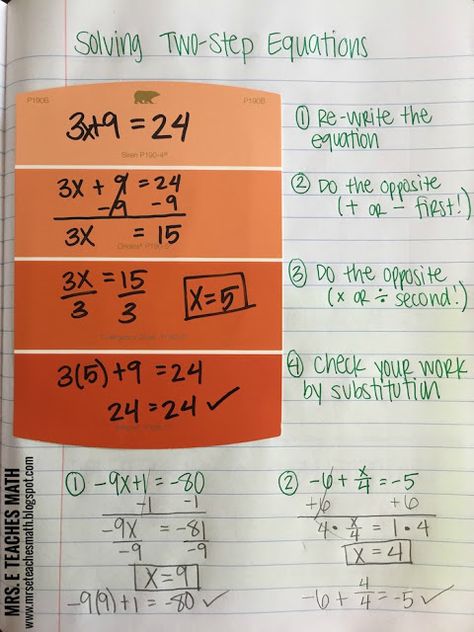 Solving Two-Step Equations
P190B P190B
3x+9 = 24
3x + 9 = 24
-9 -9
3x = 15
3x = 15
3 3
x=5
3(5)+9 = 24
24 = 24 ✓
① Re-write the
equation
② Do the opposite
(+ or − first!)
③ Do the opposite
(x or ÷ second!)
④ Check your work
by substitution
① -9x+1 = -80
-1 -1
-9x = -81
-9 -9
x=9
-9(9)+1 = -80 ✓
② -6 + x/4 = -5
+6 +6
4 · x/4 = 1 · 4
x=4
-6 + 4/4 = -5 ✓
MRS. E TEACHES MATH
www.mrseteachesmath.blogspot.com